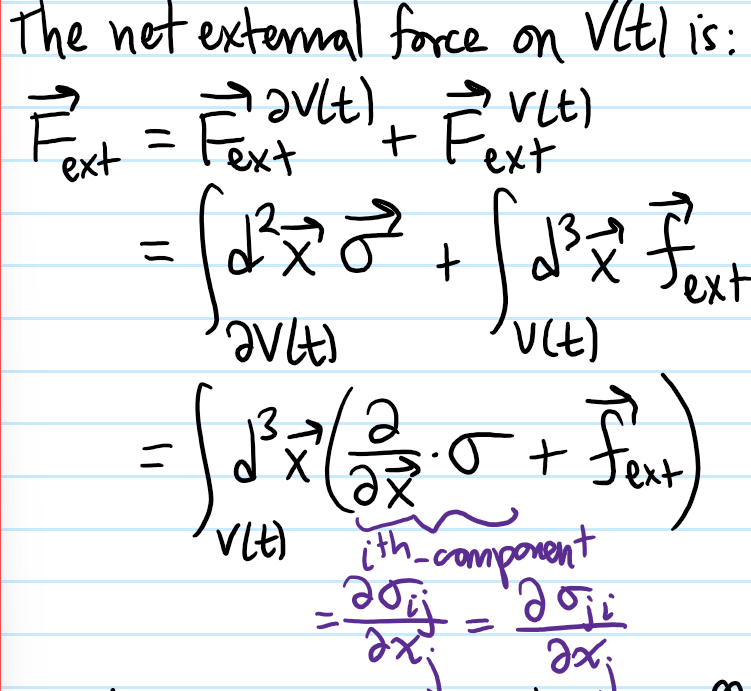 The net external force on V(t) is:
$\vec{F}_{ext} = \vec{F}_{ext}^{\partial V(t)} + \vec{F}_{ext}^{V(t)}$
$= \int_{\partial V(t)} d^2\vec{x} \, \vec{\sigma} + \int_{V(t)} d^3\vec{x} \, \vec{f}_{ext}$
$= \int_{V(t)} d^3\vec{x} \left( \frac{\partial}{\partial \vec{x}} \cdot \sigma + \vec{f}_{ext} \right)$
$i^{th}$-component
$= \frac{\partial \sigma_{ij}}{\partial x_j} = \frac{\partial \sigma_{ji}}{\partial x_j}$